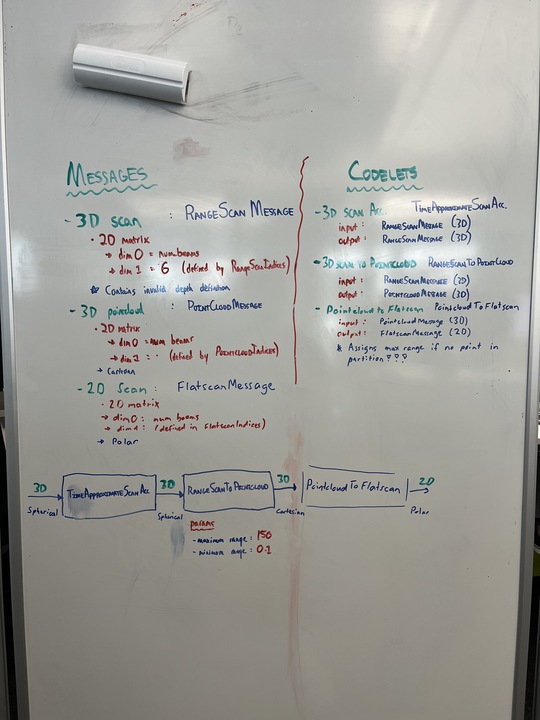 MESSAGES
- 3D scan : RANGESCAN MESSAGE
• 2D matrix
→ dim 0 = num beams
→ dim 1 = 6 (defined by RangeScanIndices)
* Contains invalid depth
- 3D pointcloud : POINTCLOUDMESSAGE
• 2D matrix
→ dim 0 = num beams
→ dim 1 = (defined by POINTCLOUDINDICES)
→ Cartesian
- 2D Scan : FLATSCANMESSAGE
• 2D matrix
→ dim 0 : num beams
→ dim 1 : (defined in FlatscanIndices)
→ Polar
CODELETS
- 3D SCAN ACC. TIMEAPPROXIMATESCANACC.
input : RANGESCANMESSAGE (3D)
output : RANGESCANMESSAGE (3D)
- 3D SCAN TO POINTCLOUD RANGESCANTOPOINTCLOUD
input : RANGESCANMESSAGE (3D)
output : POINTCLOUDMESSAGE (3D)
- Pointcloud to Flatscan PointcloudToFlatscan
input : PointcloudMessage (3D)
output : FLATSCANMESSAGE (2D)
* Assigns max range if no point in
partition ???
3D Spherical
TIMEAPPROXIMATESCANACC
3D Spherical
RANGESCANTOPOINTCLOUD
3D Cartesian
PointcloudToFlatscan
2D Polar
params
- maximum range : 150
- minimum range : 0.1